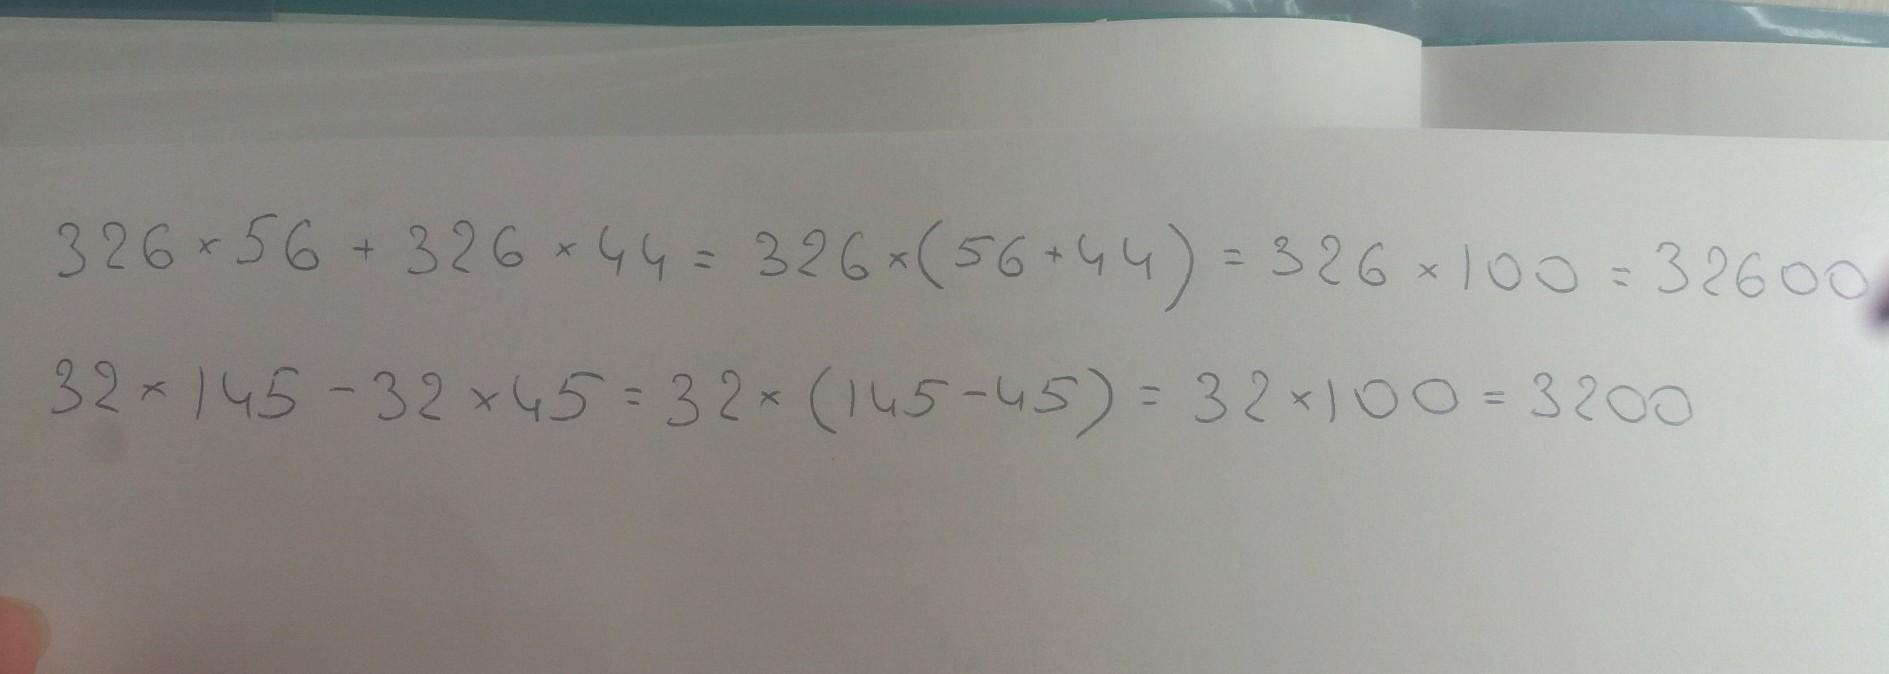 326×56 + 326×44 = 326×(56+44) = 326×100 = 32600
32×145-32×45 = 32×(145-45) = 32×100 = 3200